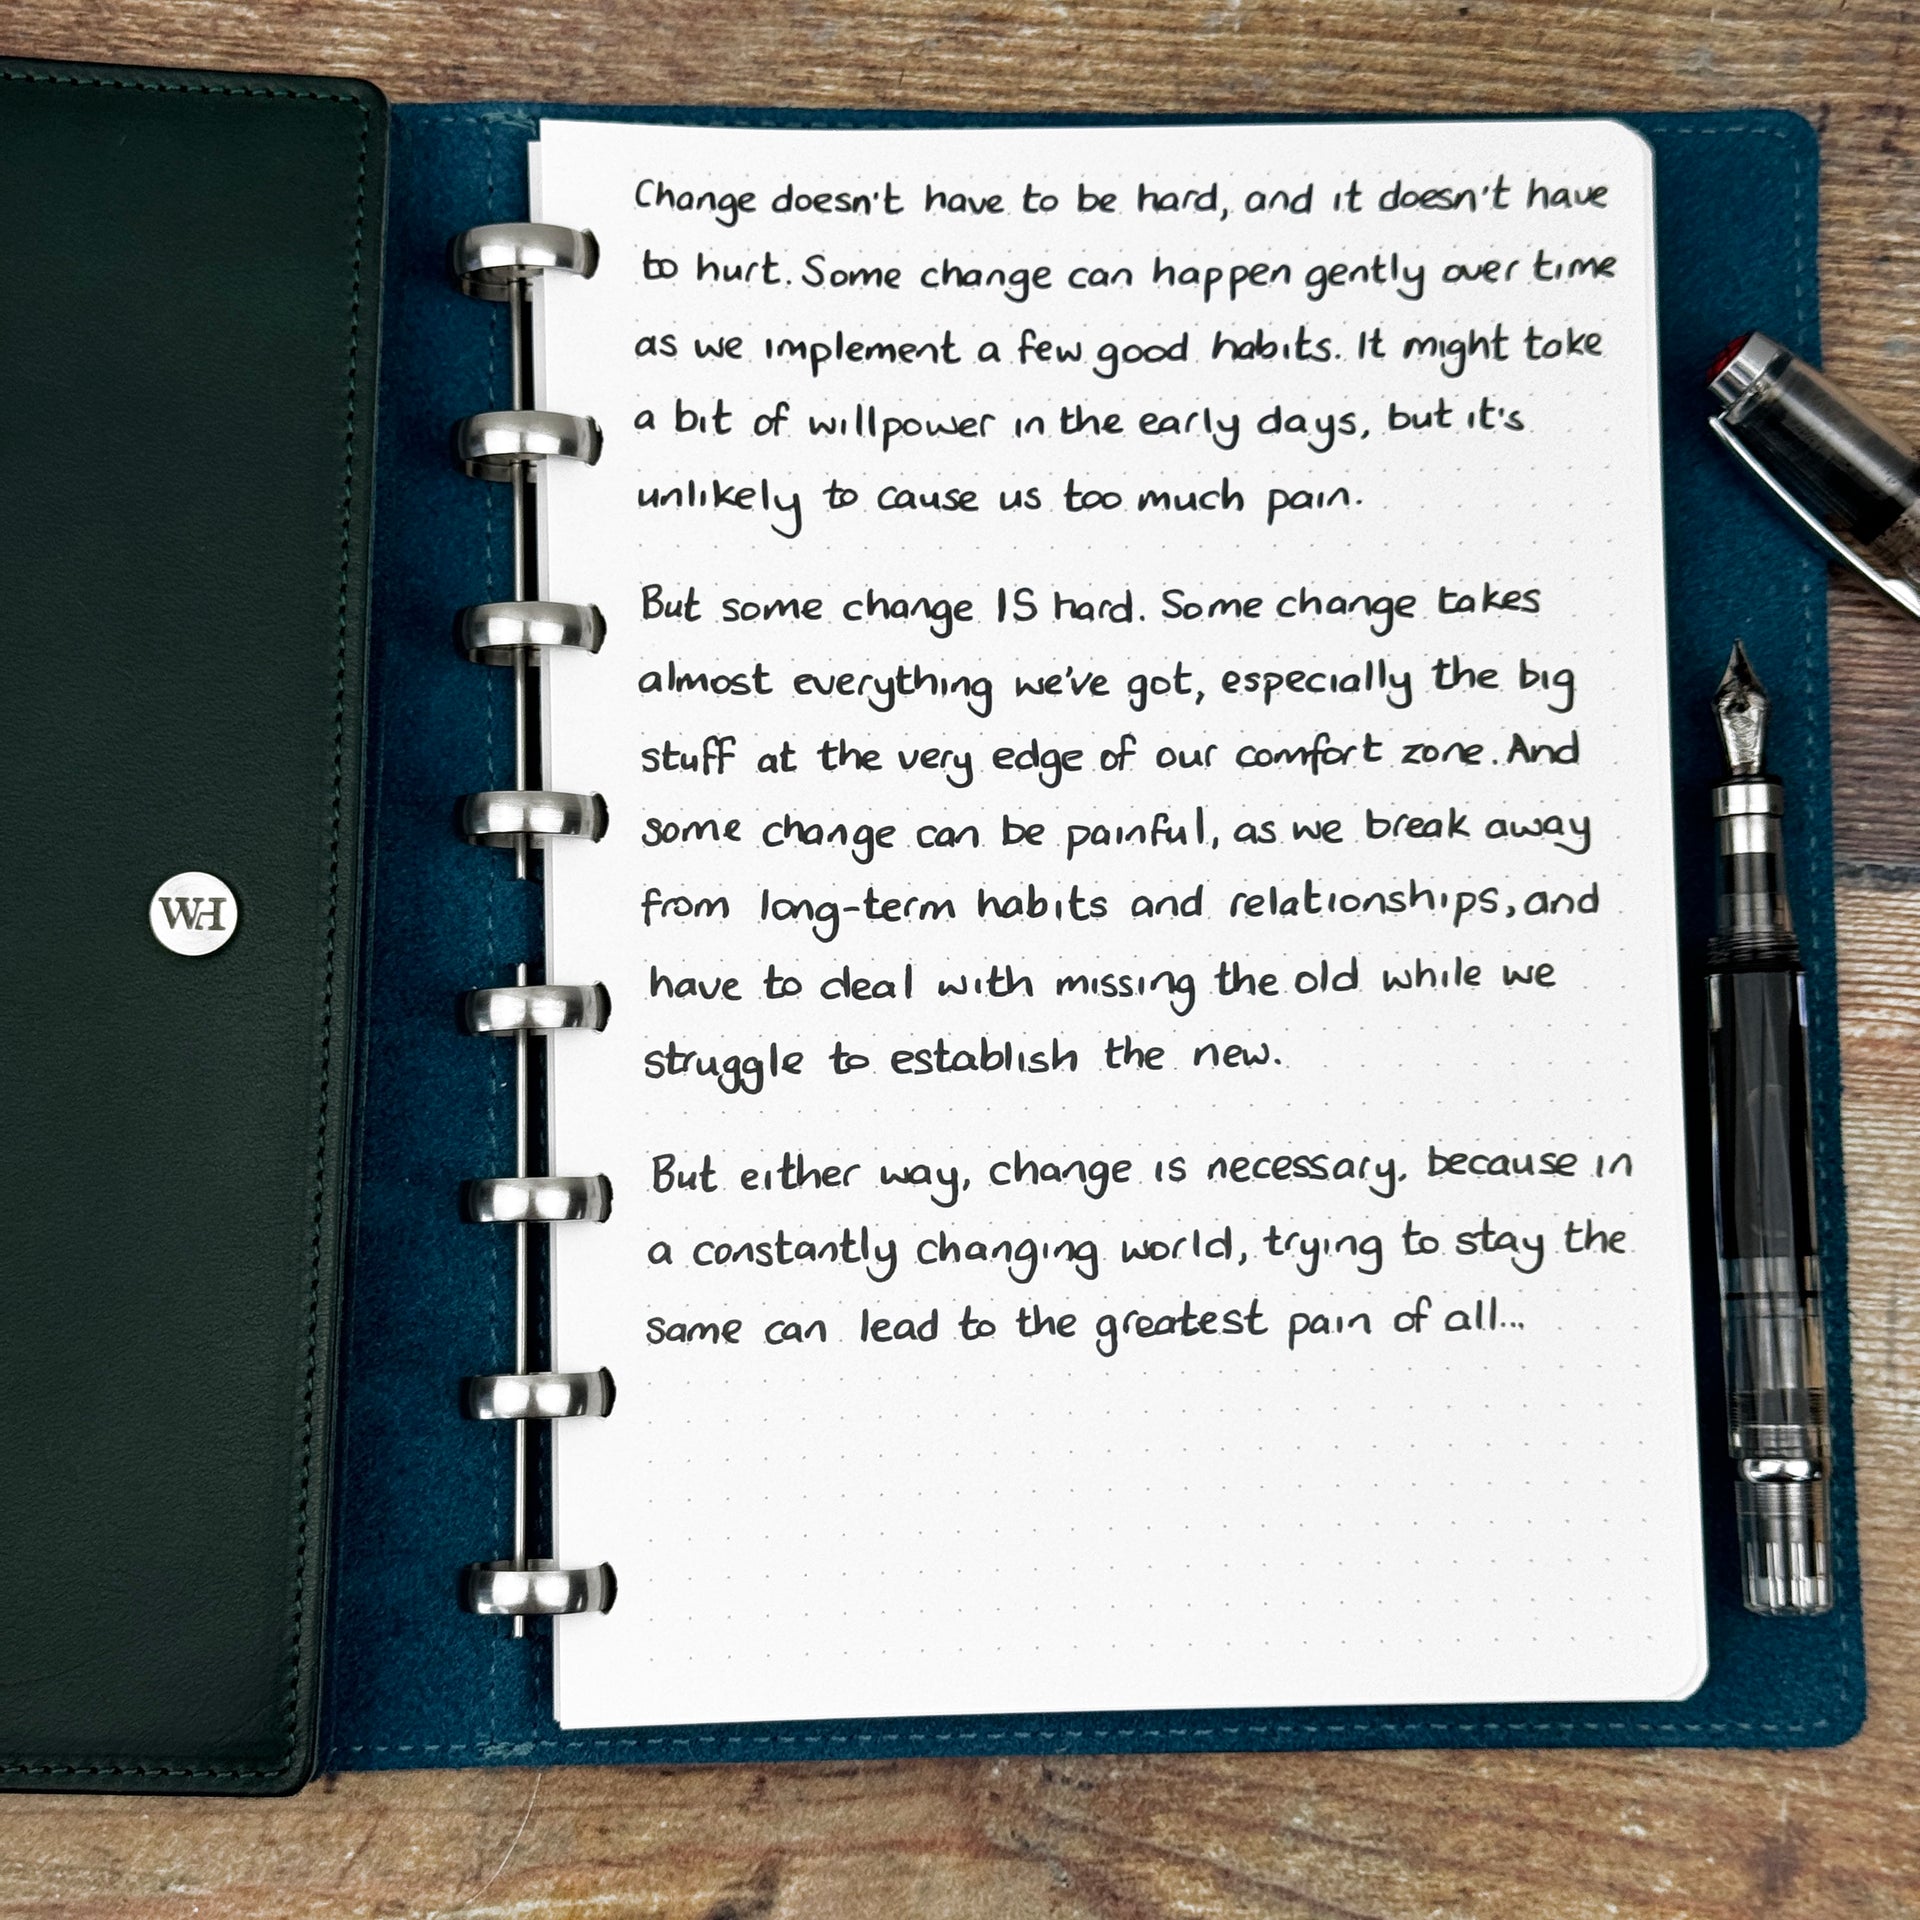 Change doesn't have to be hard, and it doesn't have
to hurt. Some change can happen gently over time
as we implement a few good habits. It might take
a bit of willpower in the early days, but it's
unlikely to cause us too much pain.
But some change IS hard. Some change takes
almost everything we've got, especially the big
stuff at the very edge of our comfort zone. And
some change can be painful, as we break away
from long-term habits and relationships, and
have to deal with missing the old while we
struggle to establish the new.
But either way, change is necessary, because in
a constantly changing world, trying to stay the
same can lead to the greatest pain of all...
WH